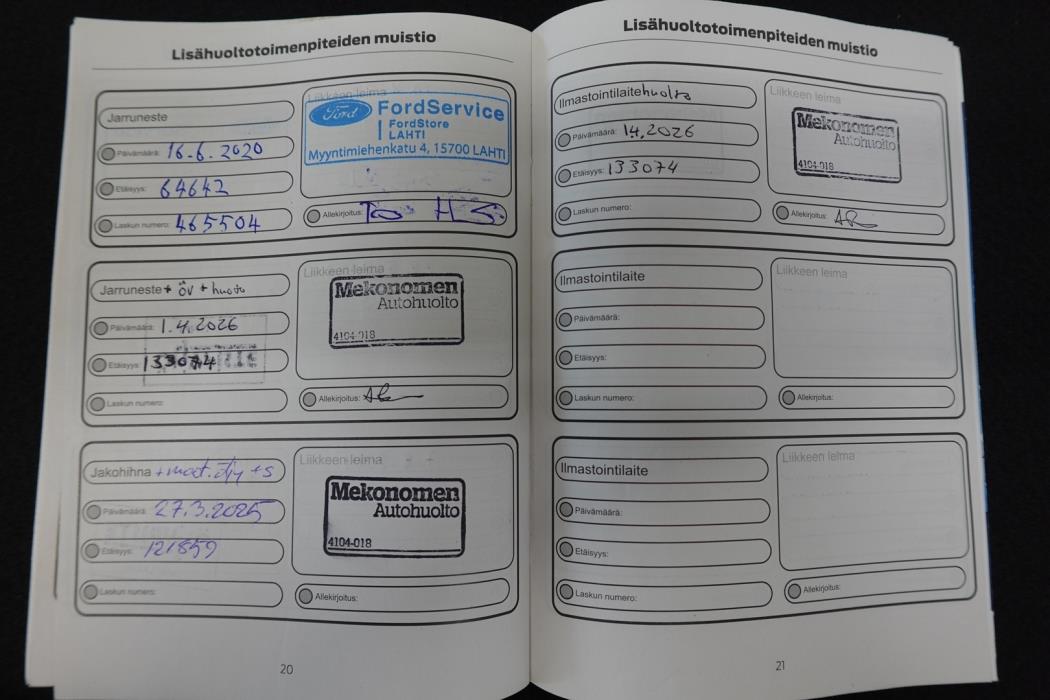 Lisähuoltotoimenpiteiden muistio
Jarruneste
Päivämäärä: 16.6.2020
Etäisyys: 64642
Laskun numero: 465504
Liikkeen leima
Ford FordService
FordStore
LAHTI
Myyntimiehenkatu 4, 15700 LAHTI
Allekirjoitus:
Jarruneste + öv + huolto
Päivämäärä: 1.4.2026
Etäisyys: 133074
Laskun numero:
Liikkeen leima
Mekonomen
Autohuolto
4104-018
Allekirjoitus:
Jakohihna + moot. öljy + s
Päivämäärä: 27.3.2025
Etäisyys: 121859
Laskun numero:
Liikkeen leima
Mekonomen
Autohuolto
4104-018
Allekirjoitus:
20
Lisähuoltotoimenpiteiden muistio
Ilmastointilaitehuolto
Päivämäärä: 1.4.2026
Etäisyys: 133074
Laskun numero:
Liikkeen leima
Mekonomen
Autohuolto
4104-018
Allekirjoitus:
Ilmastointilaite
Päivämäärä:
Etäisyys:
Laskun numero:
Liikkeen leima
Allekirjoitus:
Ilmastointilaite
Päivämäärä:
Etäisyys:
Laskun numero:
Liikkeen leima
Allekirjoitus:
21